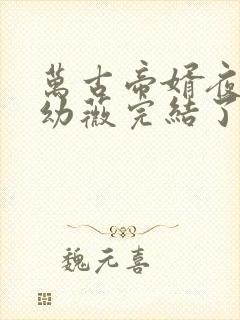 萬古帝婿夜
幼薇完結了
魏元喜